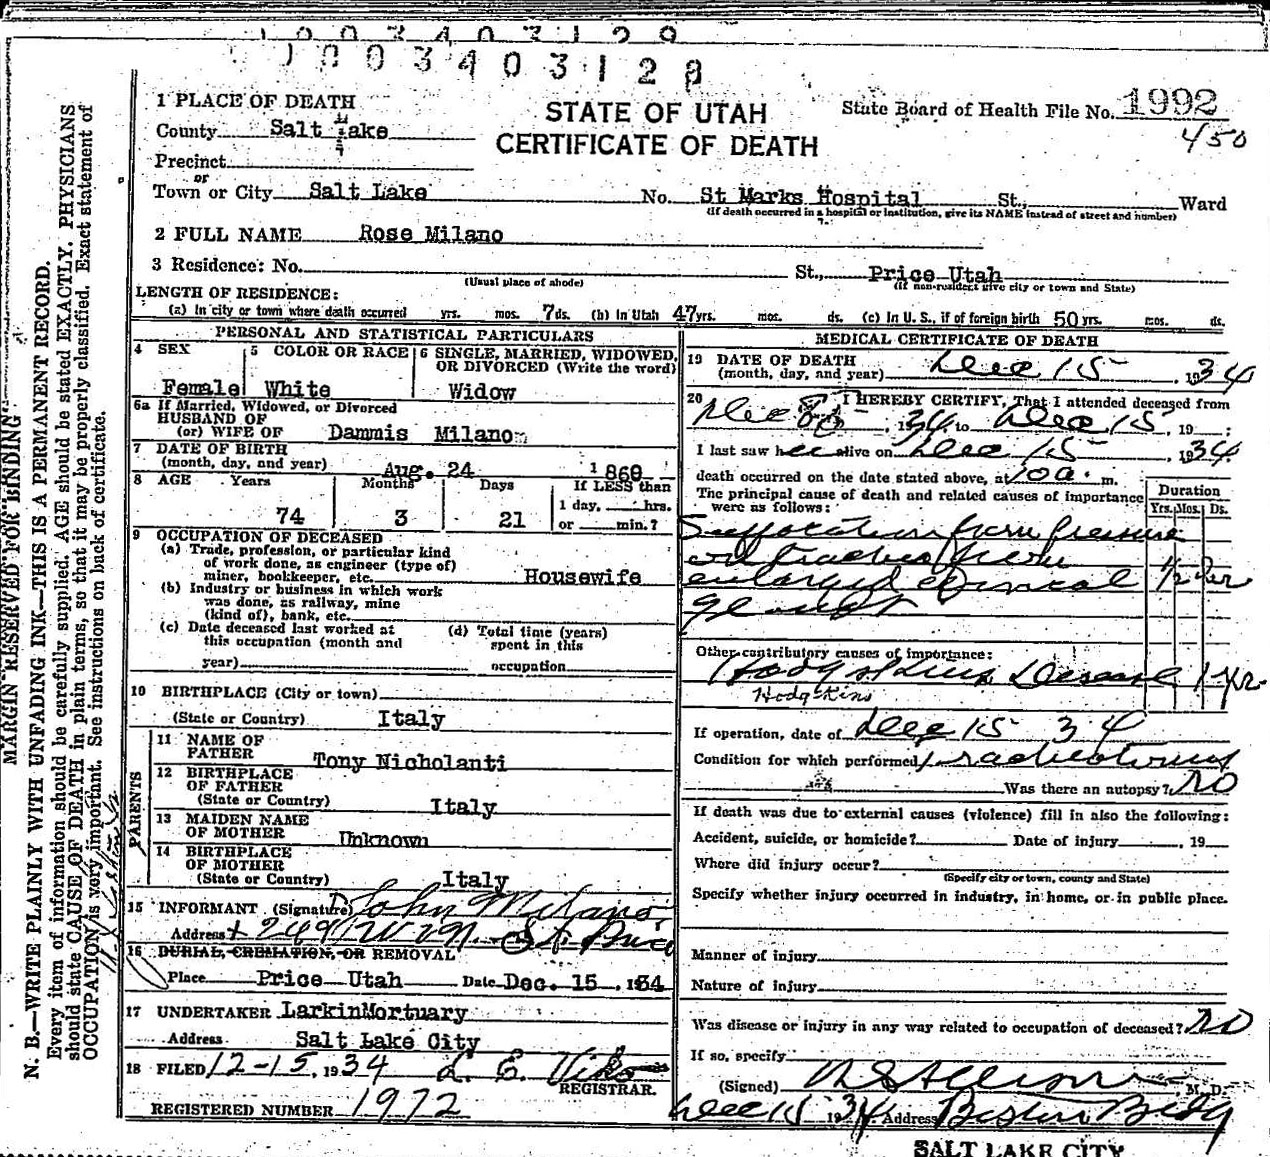 1003403129
1003403128
1 PLACE OF DEATH
County Salt Lake
Precinct
or
Town or City Salt Lake
STATE OF UTAH
CERTIFICATE OF DEATH
State Board of Health File No. 1992
450
No. St Marks Hospital St., Ward
(If death occurred in a hospital or institution, give its NAME instead of street and number)
2 FULL NAME Rose Milano
3 Residence: No. St., Price Utah
(Usual place of abode) (If non-resident give city or town and State)
LENGTH OF RESIDENCE:
(a) In city or town where death occurred yrs. mos. 7 ds. (b) In Utah 47 yrs. mos. ds. (c) In U. S., if of foreign birth 50 yrs. mos. ds.
PERSONAL AND STATISTICAL PARTICULARS
4 SEX Female
5 COLOR OR RACE White
6 SINGLE, MARRIED, WIDOWED, OR DIVORCED (Write the word) Widow
6a If Married, Widowed, or Divorced
HUSBAND OF
(or) WIFE OF Dammis Milano
7 DATE OF BIRTH
(month, day, and year) Aug. 24 1860
8 AGE Years Months Days If LESS than
74 3 21 1 day, hrs.
or min.?
9 OCCUPATION OF DECEASED
(a) Trade, profession, or particular kind
of work done, as engineer (type of)
miner, bookkeeper, etc. Housewife
(b) Industry or business in which work
was done, as railway, mine
(kind of), bank, etc.
(c) Date deceased last worked at
this occupation (month and
year)
(d) Total time (years)
spent in this
occupation
10 BIRTHPLACE (City or town)
(State or Country) Italy
PARENTS
11 NAME OF
FATHER Tony Nicholanti
12 BIRTHPLACE
OF FATHER
(State or Country) Italy
13 MAIDEN NAME
OF MOTHER Unknown
14 BIRTHPLACE
OF MOTHER
(State or Country) Italy
15 INFORMANT (Signature) John Milano
Address 249 W St. Price
16 BURIAL, CREMATION, OR REMOVAL
Place Price Utah Date Dec. 15, 1934
17 UNDERTAKER LarkinMortuary
Address Salt Lake City
18 FILED 12-15, 1934 L. E. Viko
REGISTRAR.
REGISTERED NUMBER 1972
MEDICAL CERTIFICATE OF DEATH
19 DATE OF DEATH
(month, day, and year) Dec 15, 1934
20 I HEREBY CERTIFY, That I attended deceased from
Dec 8, 1934 to Dec 15, 19 ;
I last saw her alive on Dec 15 1934
death occurred on the date stated above, at 10 a. m.
The principal cause of death and related causes of importance
were as follows:
Duration
Yrs. Mos. Ds.
Suffocation from pressure
on trachea from
enlarged cervical 1/2 hr
glands
Other contributory causes of importance:
Hodgskins Disease 1 yr.
Hodgskins
If operation, date of Dec 15 34
Condition for which performed tracheotomy
Was there an autopsy? No
If death was due to external causes (violence) fill in also the following:
Accident, suicide, or homicide? Date of injury , 19
Where did injury occur?
(Specify city or town, county and State)
Specify whether injury occurred in industry, in home, or in public place.
Manner of injury
Nature of injury
Was disease or injury in any way related to occupation of deceased? No
If so, specify
(Signed) , M. D.
Dec 15 1934. Address Boston Bldg
SALT LAKE CITY
MARGIN RESERVED FOR BINDING
N. B.—WRITE PLAINLY WITH UNFADING INK—THIS IS A PERMANENT RECORD.
Every item of information should be carefully supplied. AGE should be stated EXACTLY. PHYSICIANS
should state CAUSE OF DEATH in plain terms, so that it may be properly classified. Exact statement of
OCCUPATION is very important. See instructions on back of certificate.